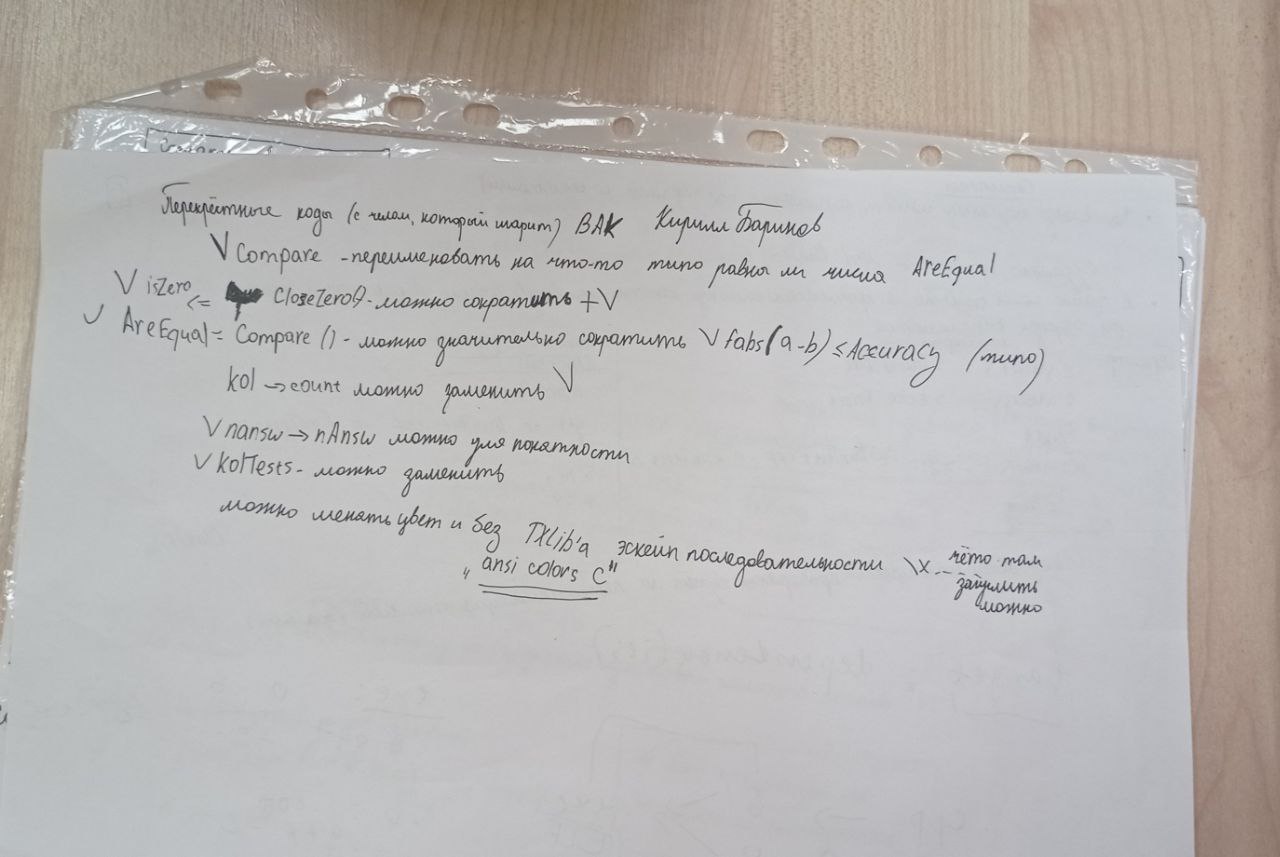 Перекрёстные коды (с челом, который шарит) ВАК Кирилл Баринов
V Compare - переименовать на что-то типо равны ли числа AreEqual
V isZero <= CloseZero() - можно сократить + V
V AreEqual = Compare () - можно значительно сократить V fabs(a-b) ≤ Accuracy (типо)
kol → count можно заменить V
V nansw → nAnsw можно для понятности
V kolTests - можно заменить
можно менять цвет и без TXLib'а эскейп последовательности \x... чёто там
"ansi colors C"
загуглить
можно